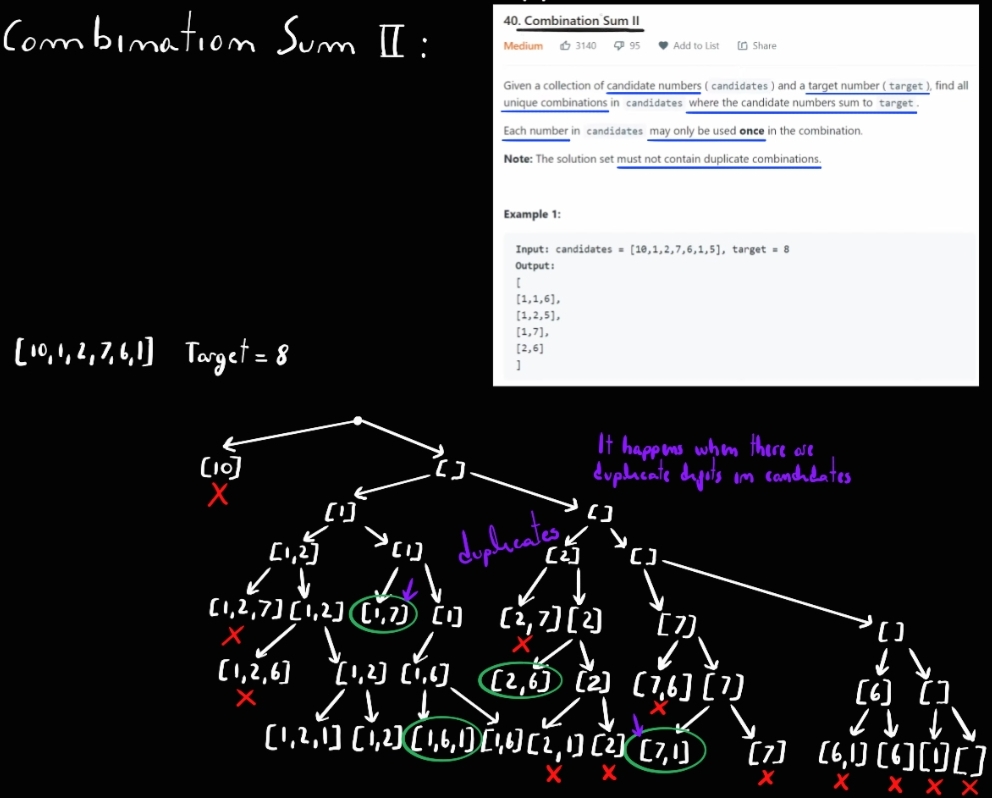 Combination Sum II:
40. Combination Sum II
Medium 3140 95 Add to List Share
Given a collection of candidate numbers ( candidates ) and a target number ( target ), find all
unique combinations in candidates where the candidate numbers sum to target .
Each number in candidates may only be used once in the combination.
Note: The solution set must not contain duplicate combinations.
Example 1:
Input: candidates = [10,1,2,7,6,1,5], target = 8
Output:
[
[1,1,6],
[1,2,5],
[1,7],
[2,6]
]
[10,1,2,7,6,1] Target = 8
It happens when there are
duplicate digits in candidates
[10] []
[1] []
duplicates
[1,2] [1] [2] []
[1,2,7] [1,2] [1,7] [1] [2,7] [2] [7] []
[1,2,6] [1,2] [1,6] [2,6] [2] [7,6] [7] [6] []
[1,2,1] [1,2] [1,6,1] [1,6] [2,1] [2] [7,1] [7] [6,1] [6] [1] []